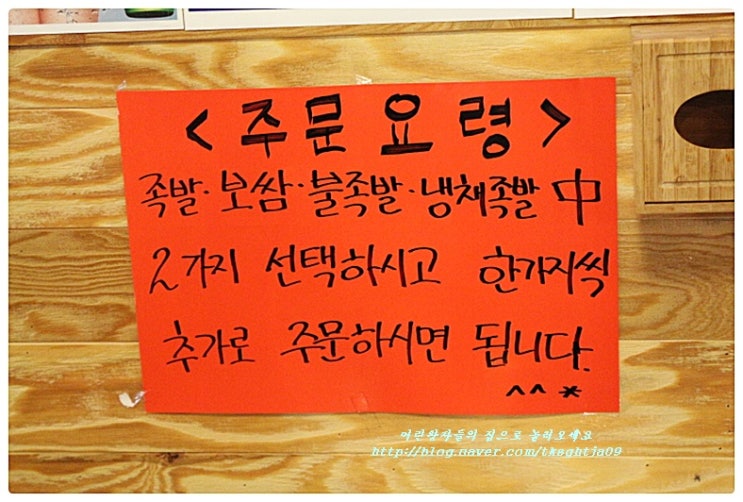 < 주문요령 >
족발·보쌈·불족발·냉채족발 中
2가지 선택하시고 한가지씩
추가로 주문하시면 됩니다.
^^*
어린왕자들의 집으로 놀러오세요
http://blog.naver.com/tksghtja09